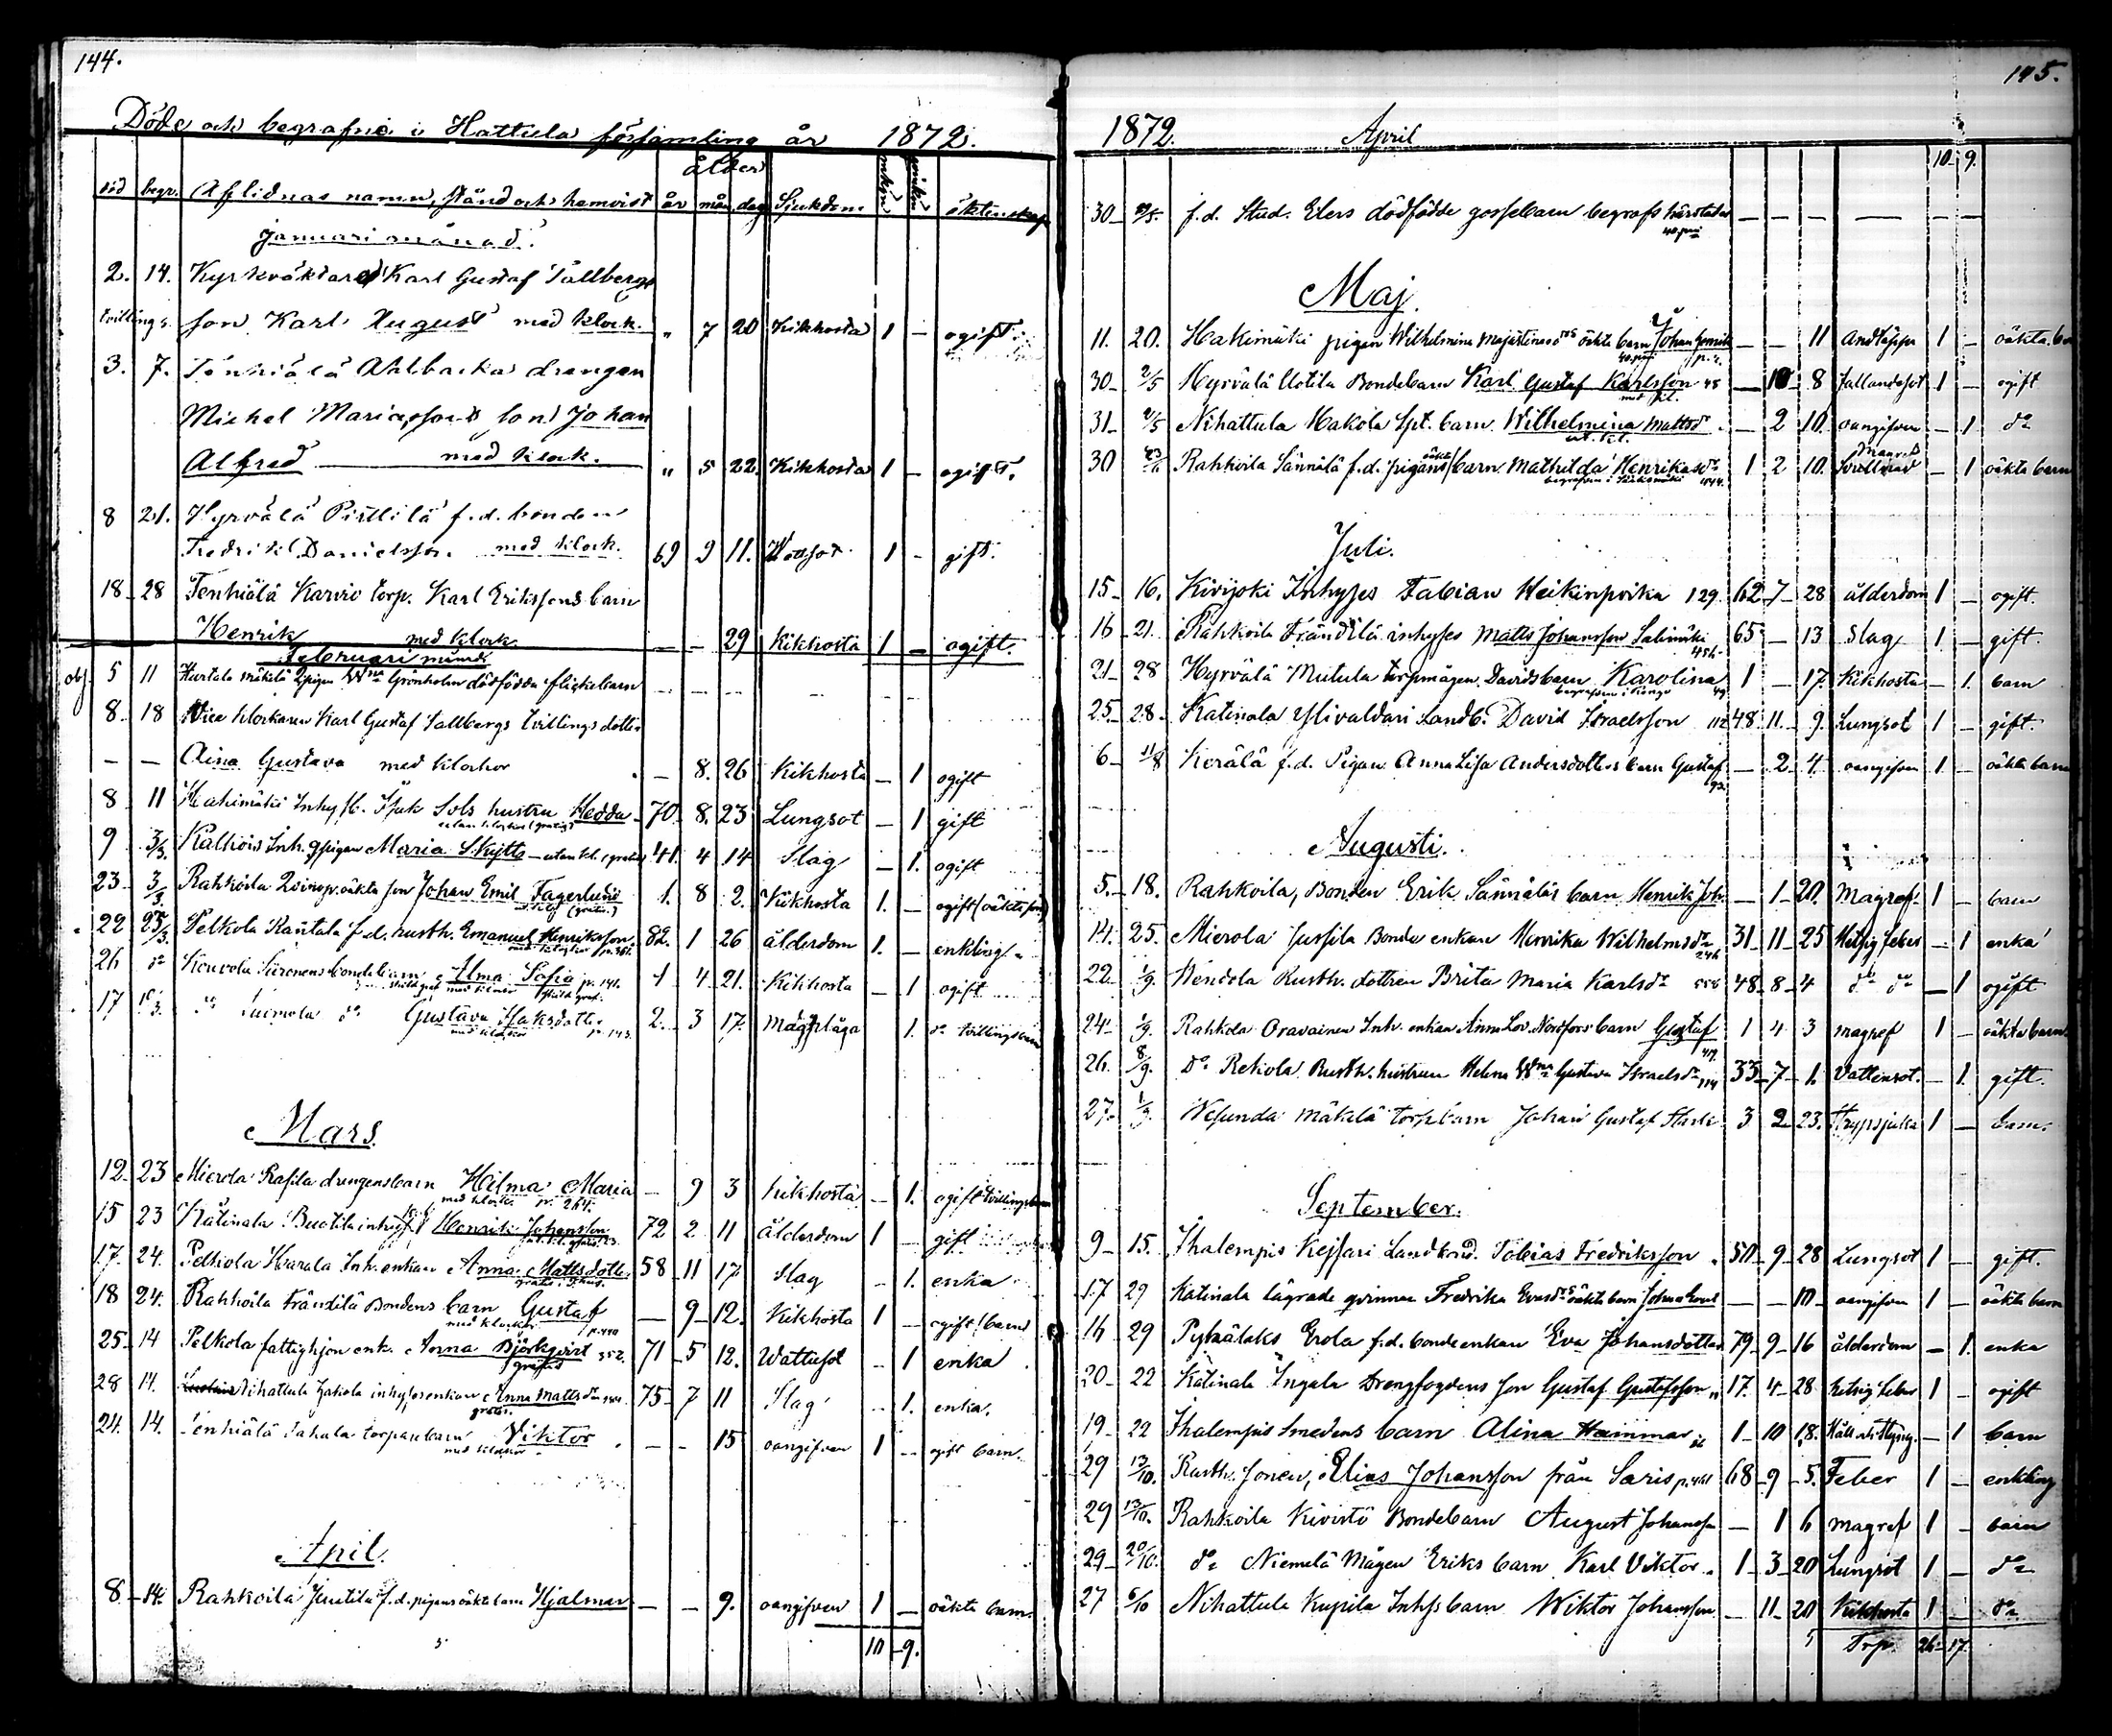 144.
Döde och begrafne i Hattula församling år 1872.
död begr. Aflidnas namn, stånd och hemvist ålder år mån. dag Sjukdom mkön qvinkön äktenskap
Januari månad.
2. 14. Kyrkväktare Karl Gustaf Tallbergs
tvillings. son Karl August med klock. " 7 20 Kikhosta 1 — ogift.
3. 7. Tenhiälä Ahlbacka drengen
Michel Mariæsons son Johan
Alfred med klock. " 5 22. Kikhosta 1 — ogift.
8 21. Hyrvälä Pistilä f.d. bonden
Fredrik Danielsson med klock. 69 9 11. 1 — gift.
18 28 Tenhiälä Karvio torp. Karl Erikssons barn
Henrik med klock — — 29 Kikhosta 1 — ogift.
Februari månad
5 11 Hurtala Mäkilä pigan Wna Grönholm dödfödda flickebarn — — —
8 18 Vice klockaren Karl Gustaf Tallbergs tvillings dotter
— — Aina Gustava med klockor — 8. 26 Kikhosta — 1 ogift
8 11 Hakimäki Inhys. Isak Sols hustru Hedda 70 8. 23 Lungsot — 1 gift
9 3/3. Kalkois Inh. pigan Maria Skytte utan kl. 41. 4 14 Slag — 1. ogift
23 3/3. Rahkoila qvinsp. oäkta son Johan Emil Fagerlund (gratis) 1. 8 2. Kikhosta 1. — ogift (oäkta son)
22 25/3. Pelkola Rantala f.d. rusth. Emanuel Henriksson 82. 1 26 ålderdom 1. — enkling
26 do bondebarn Alma Sofia p. 141. 1 4 21. Kikhosta — 1 ogift
17 do Gustava Isaksdotter p. 143. 2. 3 17. 1. do tvillingsbarn
Mars.
12 23 Mierola Rasila drengens barn Hilma Maria med klock. p. 264. — 9 3 kikhosta — 1. ogift tvillingsbarn
15 23 Kätinala Buotila inhys. Henrik Johansson 72 2 11 Ålderdom 1 — gift
17. 24. Pelkola Harala Inh. enkan Anna Mattsdotter 58 11 17 Slag — 1. enka
18 24. Rahkoila Frändilä Bondens barn Gustaf med klockor — 9 12. Kikhosta 1 — ogift (barn)
25 14 Pelkola fattighjon enk. Anna Björkqvist 352. gratis 71 5 12. Wattusot — 1 enka
28 14. Nihattula Jakola inhyses enkan Anna Mattsdr gratis. 75 7 11 Slag — 1. enka.
24. 14. Tenhiälä Pahala torpare barn Viktor med klockor — — 15 oangifven 1 — ogift barn.
April.
8 14. Rahkoila Juutila f.d. pigans oäkta barn Hjalmar — — 9. oangifven 1 — oäkta barn.
10 9.
145.
1872. April
10. 9.
30 f.d. Stud. Elers dödfödde gossebarn begrafs härstädes — — — — — —
Maj.
11. 20. Hakimäki pigan Wilhelmina Majastinas oäkta barn Johan Henrik — — 11 Andtäppa 1 — oäkta. barn
30 2/5 Hyrvälä Uotila Bondebarn Karl Gustaf Karlsson 45 — 10 8 fallandesot 1 — ogift
31 Nihattula Hakola Spt. barn Wilhelmina Mattsdr — 2 10. oangifven — 1. do
30 Rahkoila Sännilä f.d. pigans oäkta barn Mathilda Henriksdr 1 2 10. — 1 oäkta barn
Juli.
15 16. Kivijoki Inhyses Fabian Heikinpoika 129. 62 7 28 ålderdom 1 — ogift.
16 21. Rahkoila Frändilä inhyses Matts Johansson Salimäki 65 — 13 Slag 1 — gift.
21 28 Hyrvälä Mutula torpmågen Davids barn Karolina 1 — 17. Kikhosta — 1. barn
25 28. Katinala Ylivaldari Landb. David Israelsson 112 48 11. 9. Lungsot 1 — gift.
6 11/8 Kerälä f.d. Pigan Anna Lisa Andersdotters barn Gustaf — 2 4 oangifven 1 — oäkta barn
Augusti.
5. 18. Rahkoila, Bonden Erik Sännäläs barn Henrik Joh. — 1 20. Magref. 1 — barn
14. 25. Mierola Jussila Bonde enkan Henrika Wilhelmsdr 31 11 25 Hetsig feber — 1 enka
22. 1/9. Wendola Rusth. dottren Brita Maria Karlsdr 48 8 4 do do — 1 ogift
24 1/9. Rahkola Oravainen Inh. enkan Anna Lov. Nordfors barn Gustaf 1 4 3 magref 1 — oäkta barn.
26. 8/9. Do Rekola Rusth. hustrun Helena Wna Gustava Israelsdr 114 33 7 1. Vattensot. — 1. gift.
27. 1/9. Wesunda Mäkelä torpbarn Johan Gustaf 3 2 23. Strypsjuka 1 — barn.
September.
9 15. Ihalempis Kejsari Landbond. Tobias Fredriksson 50 9 28 Lungsot 1 — gift.
17 29 Katinala lägrade qvinnan Fredrika Evasdrs oäkta barn Johan — — 10 oangifven 1 — oäkta barn
16 29 Pyhälaks Erola f.d. bonde enkan Eva Johansdotter 79 9 16 ålderdom — 1. enka
20 22 Katinala Ingala Drengfogdens son Gustaf Gustafsson 17. 4 28 hetsig feber 1 — ogift
19 22 Ihalempis Smedens barn Alina Hammar 1 10 18. — 1 barn
29 13/10. Rusth. sonen, Elias Johansson från Saris p. 461 68 9 5. Feber 1 — enkling
29 13/10. Rahkoila Kivistö Bondebarn August Johansson — 1 6 magref 1 — barn
29 20/10. do Niemelä Mågen Eriks barn Karl Viktor 1 3 20 Lungsot 1 — do
27 6/10 Nihattula Kupila Inhys barn Wiktor Johansson — 11 20 Kikhosta 1 — do
Trp. 26 17.